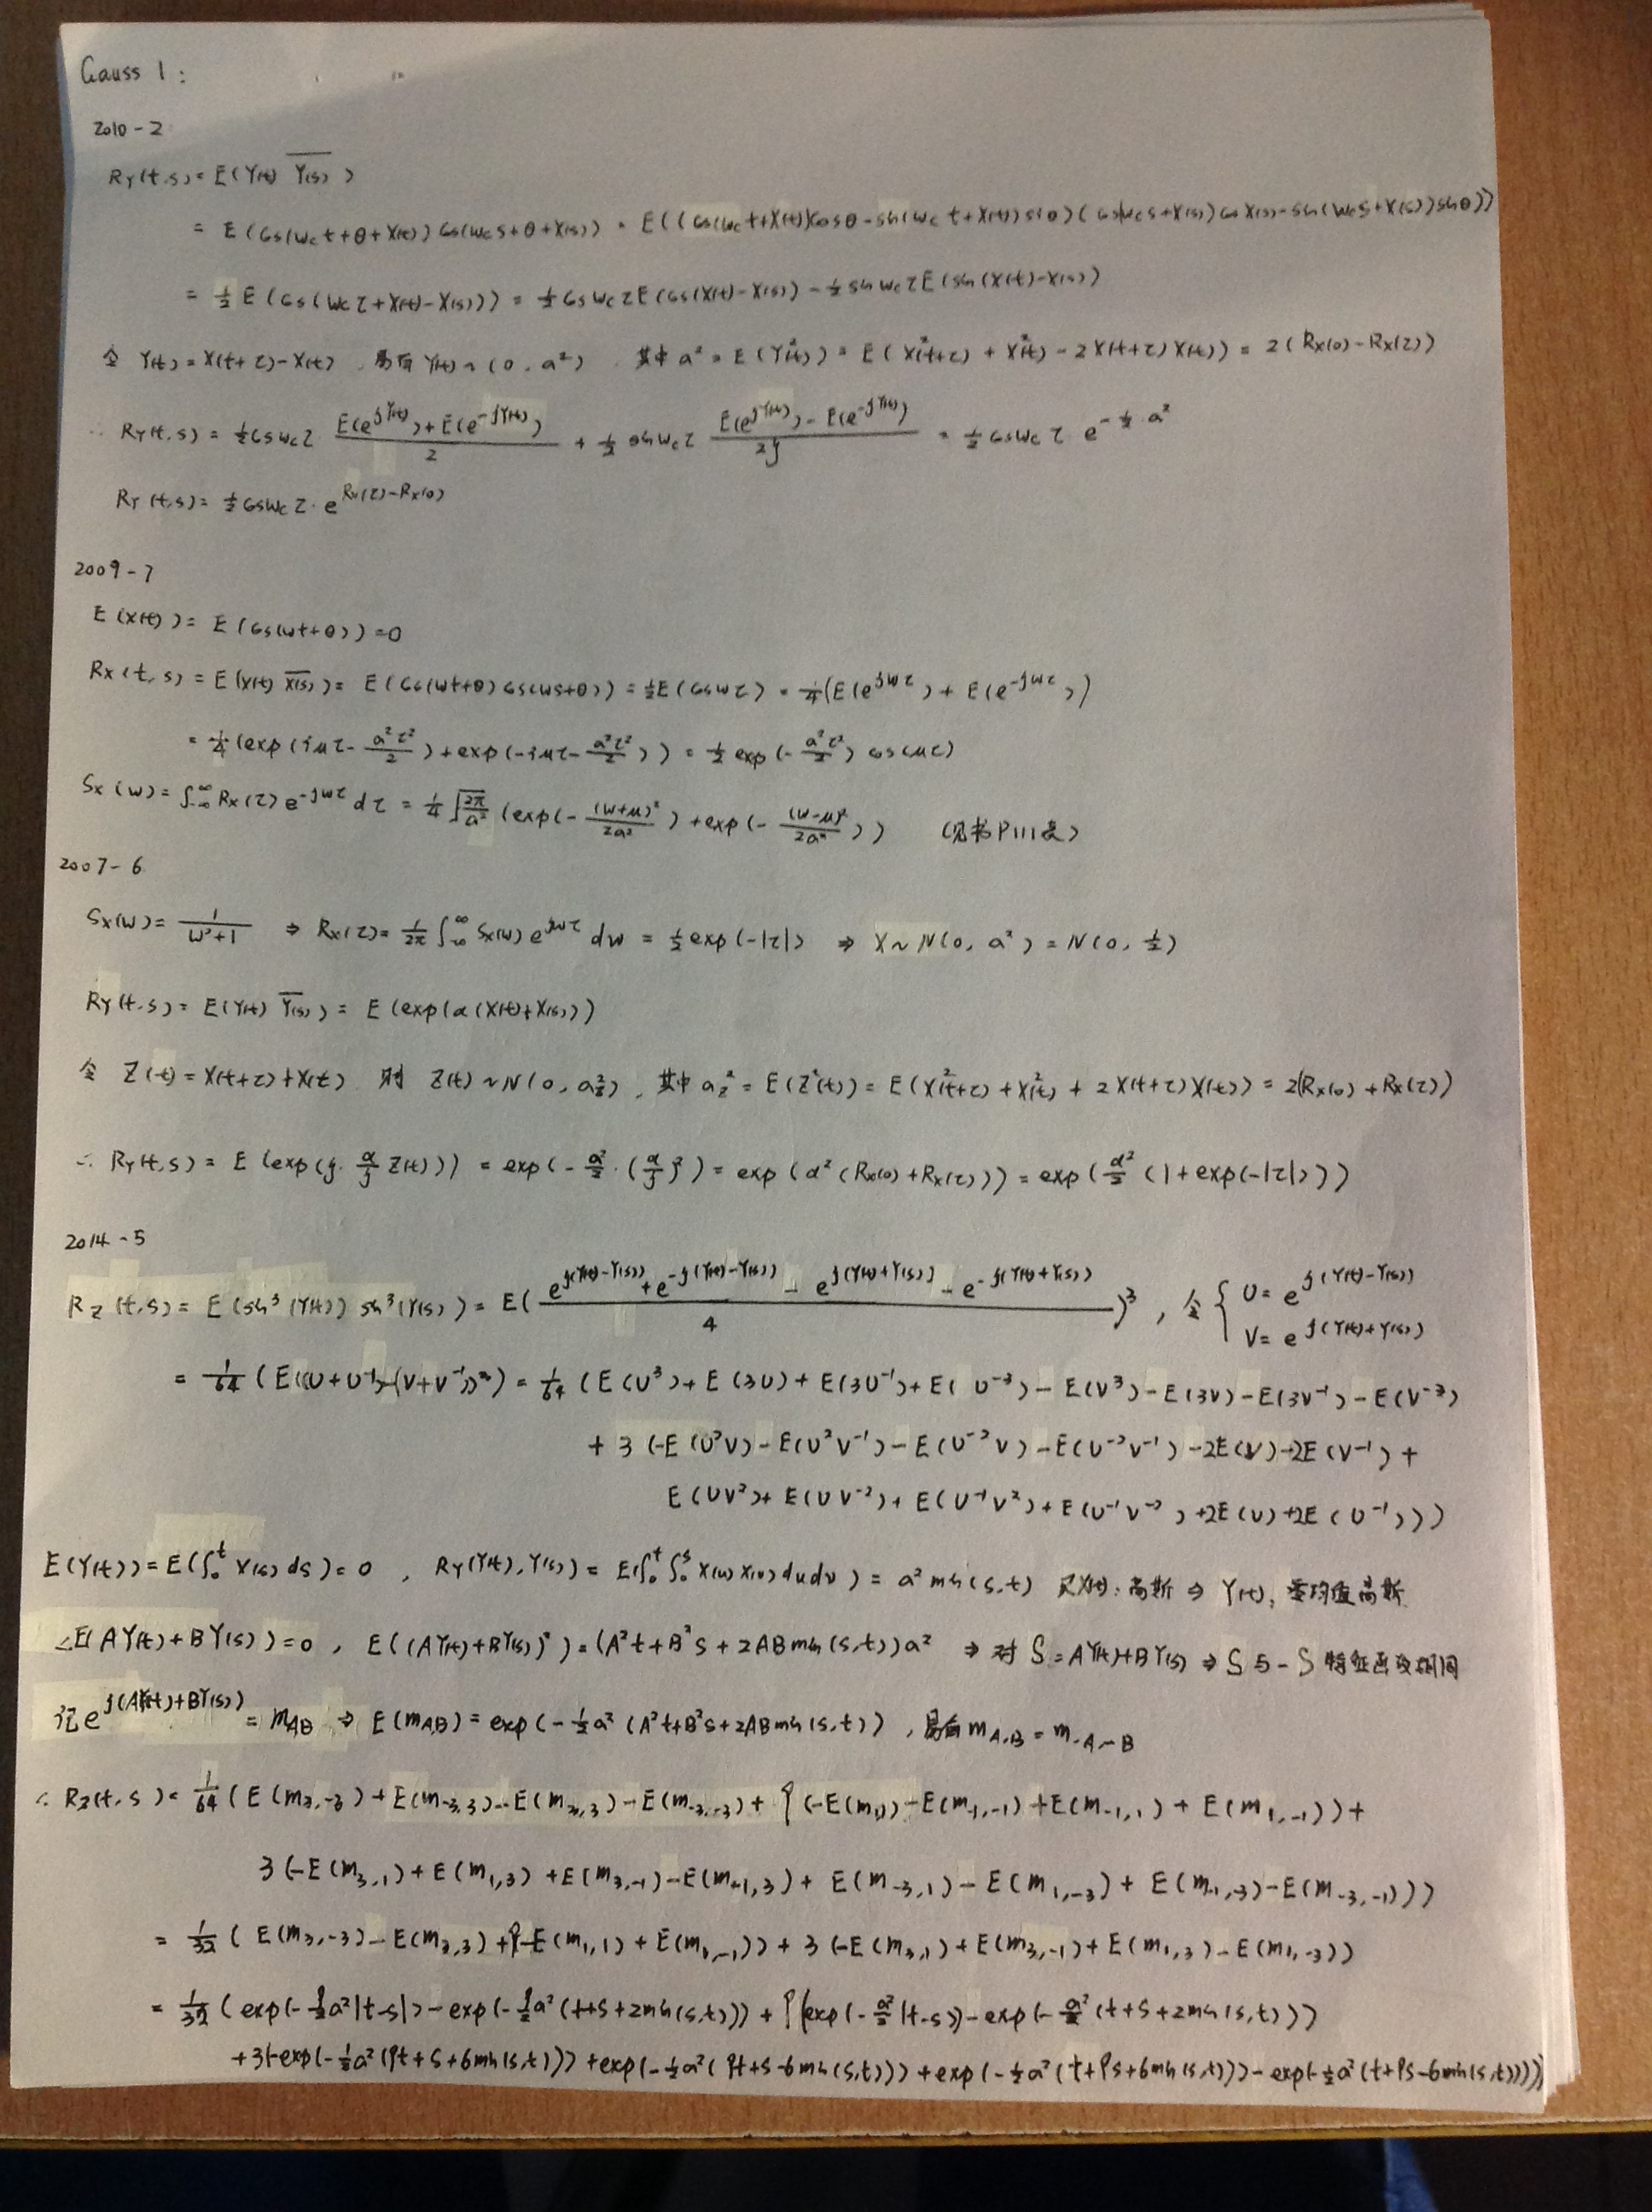 Gauss 1:
2010-2
R_Y(t,s) = E(Y(t) \overline{Y(s)})
= E(cos(w_c t+θ+X(t)) cos(w_c s+θ+X(s))) = E((cos(w_c t+X(t))cosθ-sin(w_c t+X(t))sinθ)(cos(w_c s+X(s))cos X(s)-sin(w_c s+X(s))sinθ))
= 1/2 E(cos(w_c τ+X(t)-X(s))) = 1/2 cos w_c τ E(cos(X(t)-X(s))) - 1/2 sin w_c τ E(sin(X(t)-X(s)))
令 Y(t)=X(t+τ)-X(t), 易有 Y(t)~(0, a²), 其中 a² = E(Y²(t)) = E(X²(t+τ)+X²(t)-2X(t+τ)X(t)) = 2(R_X(0)-R_X(τ))
∴ R_Y(t,s) = 1/2 cos w_c τ (E(e^{jY(t)})+E(e^{-jY(t)}))/2 + 1/2 sin w_c τ (E(e^{jY(t)})-E(e^{-jY(t)}))/2j = 1/2 cos w_c τ e^{-1/2 a²}
R_Y(t,s) = 1/2 cos w_c τ · e^{R_X(τ)-R_X(0)}
2009-7
E(X(t)) = E(cos(wt+θ)) = 0
R_X(t,s) = E(X(t) \overline{X(s)}) = E(cos(wt+θ)cos(ws+θ)) = 1/2 E(cos wτ) = 1/4(E(e^{jwτ})+E(e^{-jwτ}))
= 1/4(exp(iμτ- a²τ²/2)+exp(-iμτ- a²τ²/2)) = 1/2 exp(- a²τ²/2) cos(μτ)
S_X(w) = ∫_{-∞}^{∞} R_X(τ)e^{-jwτ}dτ = 1/4 √(2π/a²) (exp(- (w+μ)²/2a²)+exp(- (w-μ)²/2a²)) (见书P111表)
2007-6
S_X(w) = 1/(w²+1) ⇒ R_X(τ) = 1/2π ∫_{-∞}^{∞} S_X(w)e^{jwτ}dw = 1/2 exp(-|τ|) ⇒ X~N(0, a²) = N(0, 1/2)
R_Y(t,s) = E(Y(t) \overline{Y(s)}) = E(exp(α(X(t)+X(s)))
令 Z(t)=X(t+τ)+X(t) 则 Z(t)~N(0, a_Z²), 其中 a_Z² = E(Z²(t)) = E(X²(t+τ)+X²(t)+2X(t+τ)X(t)) = 2(R_X(0)+R_X(τ))
∴ R_Y(t,s) = E(exp(j· α/j Z(t))) = exp(- a²/2 · (α/j)²) = exp(α²(R_X(0)+R_X(τ))) = exp(α²/2 (1+exp(-|τ|)))
2014-5
R_Z(t,s) = E(sin³(Y(t)) sin³(Y(s)) = E((e^{j(Y(t)-Y(s))}+e^{-j(Y(t)-Y(s))}-e^{j(Y(t)+Y(s))}-e^{-j(Y(t)+Y(s))})/4)³, 令 { U = e^{j(Y(t)-Y(s))}
V = e^{j(Y(t)+Y(s))}
= 1/64 (E((U+U^{-1})-(V+V^{-1}))³) = 1/64 (E(U³)+E(3U)+E(3U^{-1})+E(U^{-3})-E(V³)-E(3V)-E(3V^{-1})-E(V^{-3})
+3(-E(U²V)-E(U²V^{-1})-E(U^{-2}V)-E(U^{-2}V^{-1})-2E(V)-2E(V^{-1})+
E(UV²)+E(UV^{-2})+E(U^{-1}V²)+E(U^{-1}V^{-2})+2E(U)+2E(U^{-1})))
E(Y(t)) = E(∫_0^t X(s)ds) = 0, R_Y(Y(t),Y(s)) = E(∫_0^t ∫_0^s X(u)X(v)dudv) = a² min(s,t) 又X(t):高斯 ⇒ Y(t), 零均值高斯
∴E(AY(t)+BY(s)) = 0, E((AY(t)+BY(s))²) = (A²t+B²s+2ABmin(s,t))a² ⇒ 对 S=AY(t)+BY(s) ⇒ S与-S 特征函数相同
记 e^{j(AY(t)+BY(s))} = m_{AB} ⇒ E(m_{A,B}) = exp(-1/2 a²(A²t+B²s+2ABmin(s,t)), 易有 m_{A,B} = m_{-A,-B}
∴ R_Z(t,s) = 1/64 (E(m_{3,-3})+E(m_{-3,3})-E(m_{3,3})-E(m_{-3,-3})+9(-E(m_{1,1})-E(m_{-1,-1})+E(m_{-1,1})+E(m_{1,-1}))+
3(-E(m_{3,1})+E(m_{1,3})+E(m_{3,-1})-E(m_{-1,3})+E(m_{-3,1})-E(m_{1,-3})+E(m_{-1,-3})-E(m_{-3,-1})))
= 1/32 (E(m_{3,-3})-E(m_{3,3})+9(-E(m_{1,1})+E(m_{1,-1}))+3(-E(m_{3,1})+E(m_{3,-1})+E(m_{1,3})-E(m_{1,-3}))
= 1/32 (exp(-9/2 a²|t-s|)-exp(-9/2 a²(t+s+2min(s,t)))+9(exp(- a²/2 |t-s|)-exp(- a²/2 (t+s+2min(s,t)))
+3(-exp(-1/2 a²(9t+s+6min(s,t)))+exp(-1/2 a²(9t+s-6min(s,t)))+exp(-1/2 a²(t+9s+6min(s,t)))-exp(-1/2 a²(t+9s-6min(s,t))))